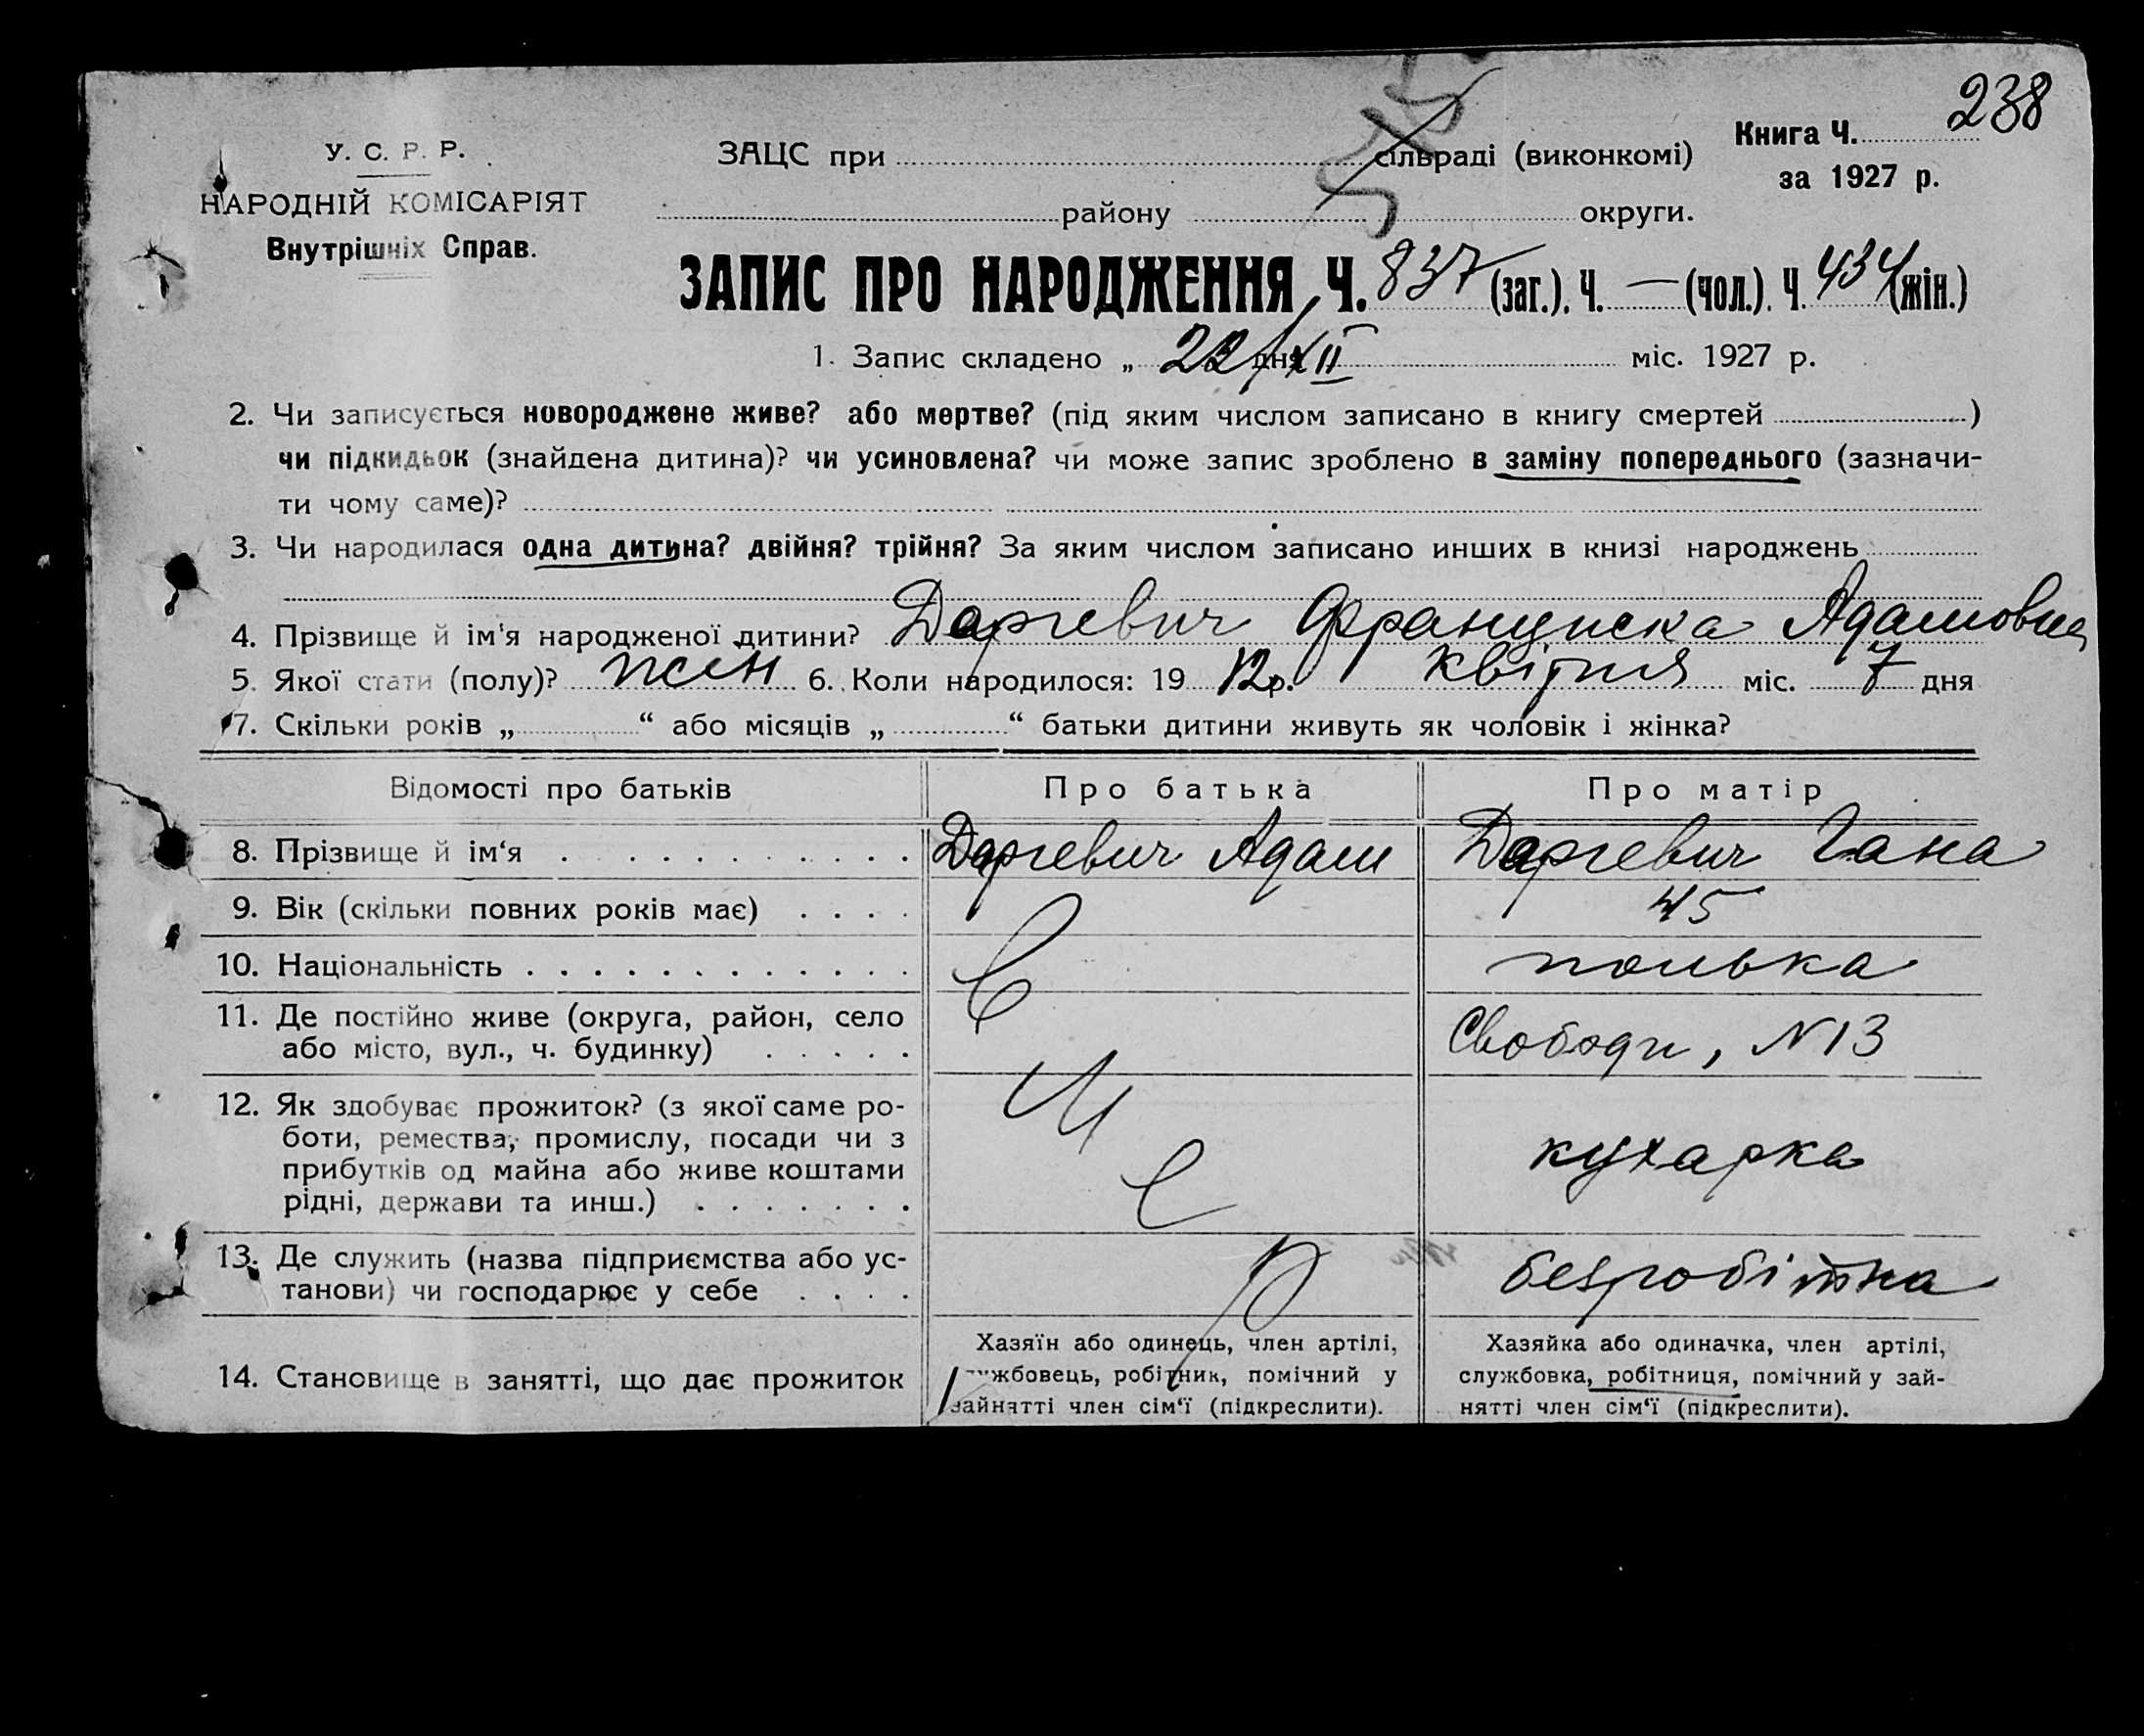 238
У. С. Р. Р.
ЗАЦС при сільраді (виконкомі)
Книга Ч.
за 1927 р.
НАРОДНІЙ КОМІСАРІЯТ
району округи.
Внутрішніх Справ.
ЗАПИС ПРО НАРОДЖЕННЯ, Ч. 837 (заг.). Ч. — (чол.). Ч. 434 (жін.)
1. Запис складено „ 22/XII дня міс. 1927 р.
2. Чи записується новороджене живе? або мертве? (під яким числом записано в книгу смертей )
чи підкидьок (знайдена дитина)? чи усиновлена? чи може запис зроблено в заміну попереднього (зазначи-
ти чому саме)?
3. Чи народилася одна дитина? двійня? трійня? За яким числом записано инших в книзі народжень
4. Прізвище й ім'я народженої дитини? Даргевич Франциска Адамовна
5. Якої стати (полу)? жін 6. Коли народилося: 19 12 р. Квітня міс. 7 дня
7. Скільки років „ “ або місяців „ “ батьки дитини живуть як чоловік і жінка?
Відомості про батьків Про батька Про матір
8. Прізвище й ім‘я Даргевич Адам Даргевич Гана
9. Вік (скільки повних років має) 45
10. Національність полька
11. Де постійно живе (округа, район, село
або місто, вул., ч. будинку) Свободи, N 13
12. Як здобуває прожиток? (з якої саме ро-
боти, ремества, промислу, посади чи з
прибутків од майна або живе коштами
рідні, держави та инш.) кухарка
13. Де служить (назва підприємства або ус-
танови) чи господарює у себе безробітна
14. Становище в занятті, що дає прожиток
Хазяїн або одинець, член артілі,
службовець, робітник, помічний у
зайнятті член сім‘ї (підкреслити).
Хазяйка або одиначка, член артілі,
службовка, робітниця, помічний у зай-
нятті член сім‘ї (підкреслити).